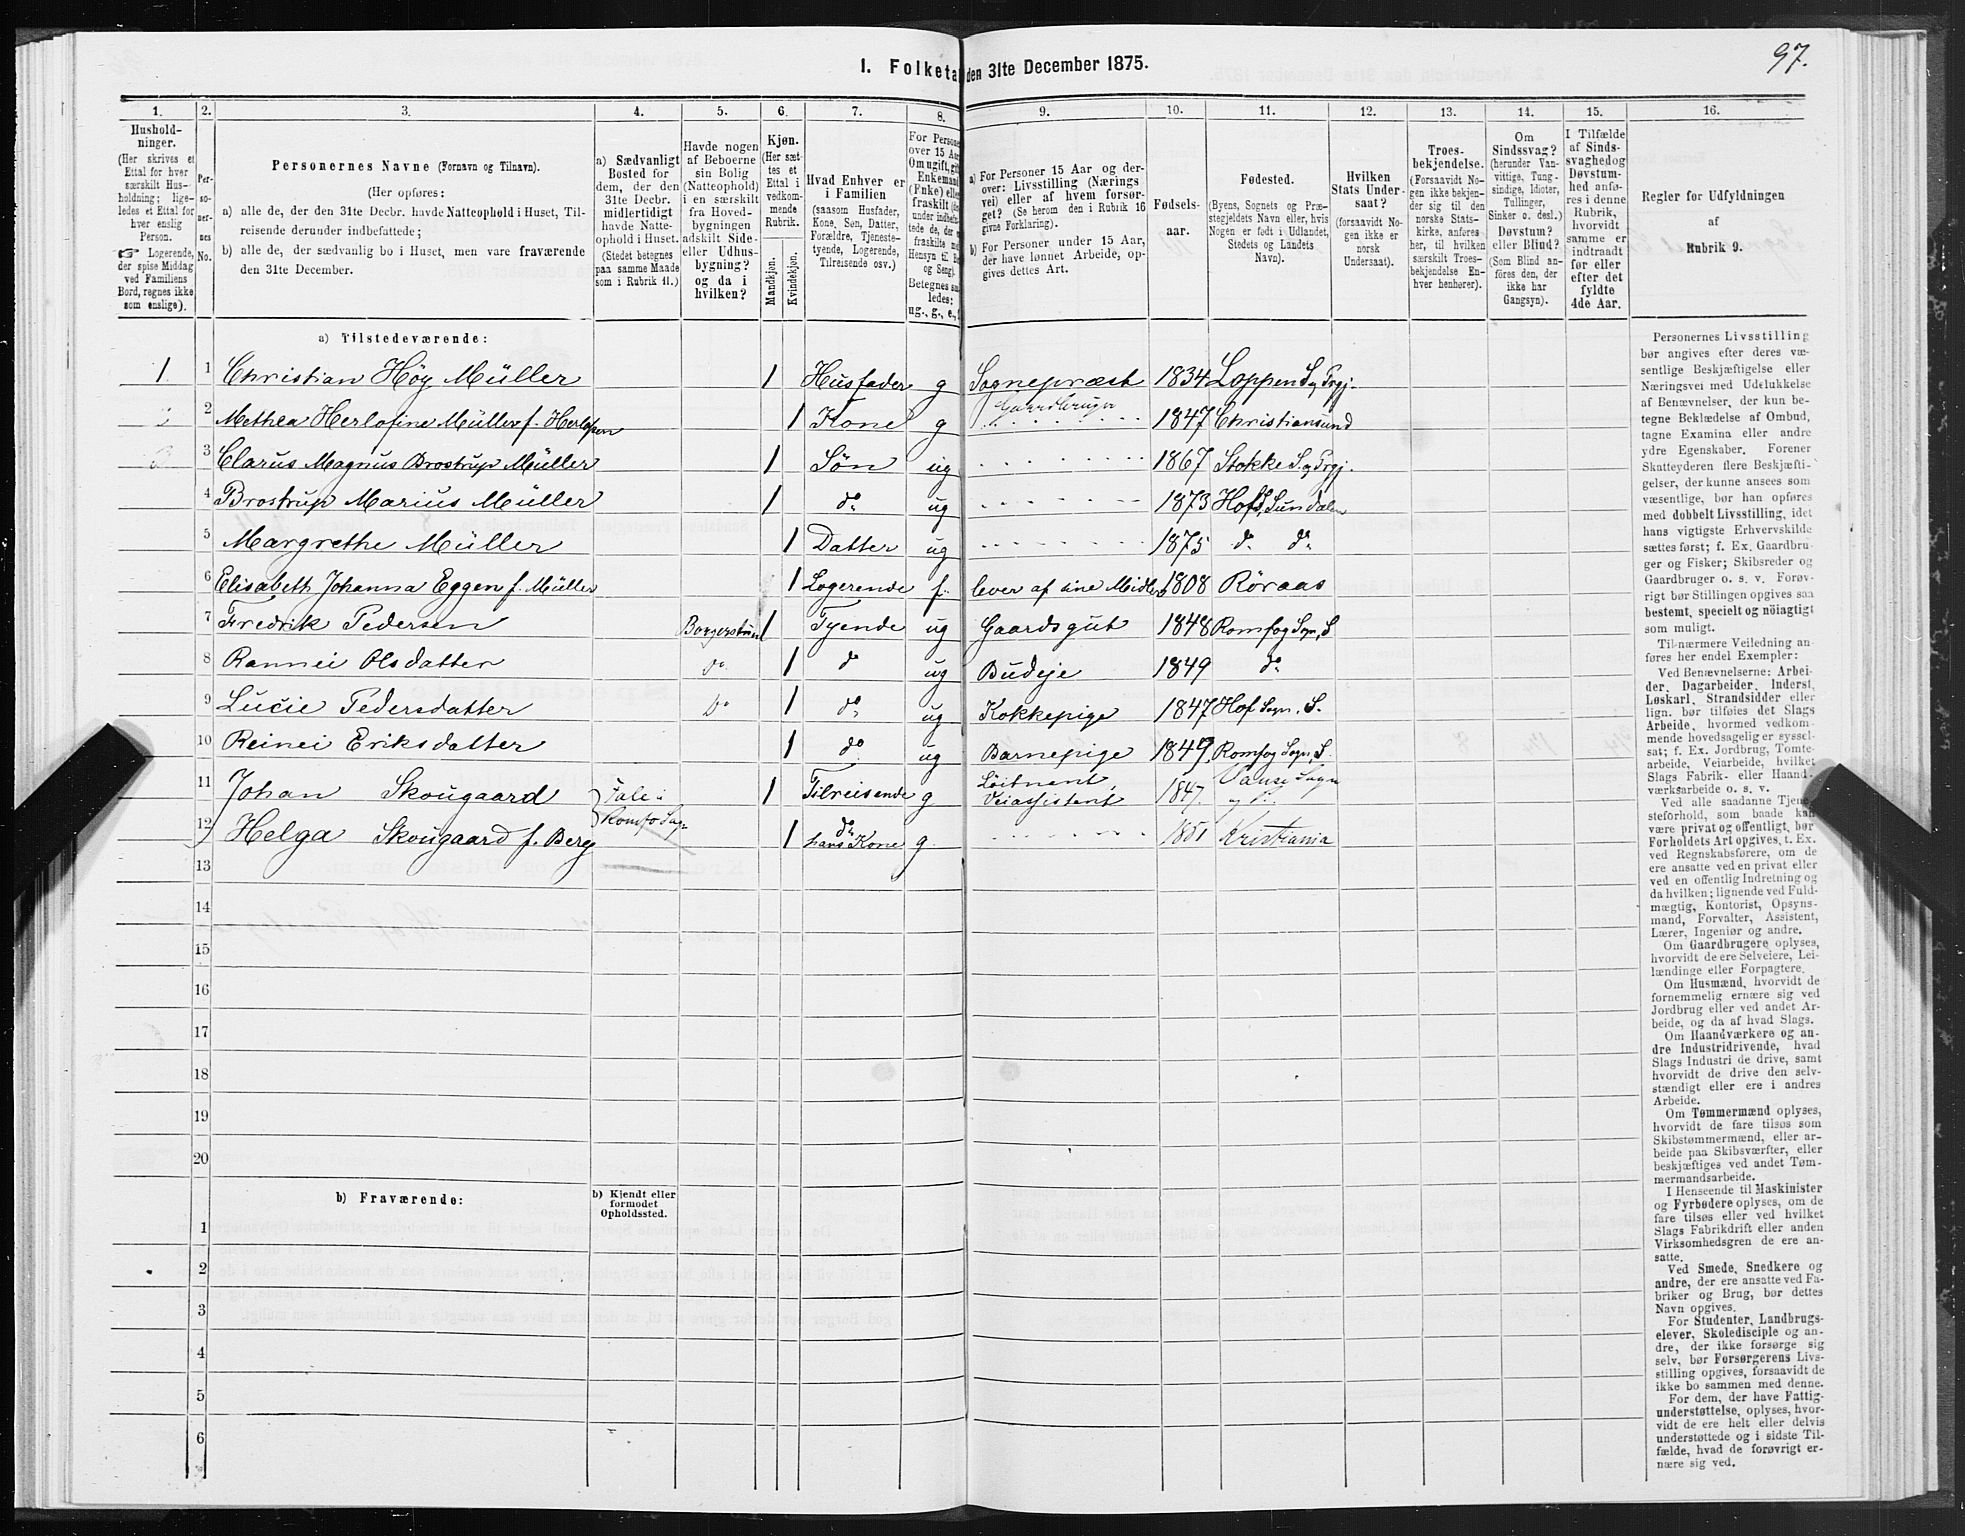 97.
I. Folketal den 31te December 1875.
1. 2. 3. 4. 5. 6. 7. 8. 9. 10. 11. 12. 13. 14. 15. 16.
Hushold-
ninger.
(Her skrives et
Ettal for hver
særskilt Hus-
holdning; lige-
ledes et Ettal for
hver enslig
Person.
☞ Logerende,
der spise Middag
ved Familiens
Bord, regnes ikke
som enslige).
Per-
so-
ner-
nes
No.
Personernes Navne (Fornavn og Tilnavn).
(Her opføres:
a) alle de, der den 31te Decbr. havde Natteophold i Huset, Til-
reisende derunder indbefattede;
b) alle de, der sædvanlig bo i Huset, men vare fraværende
den 31te December.
a) Sædvanligt
Bosted for
dem, der den
31te Decbr.
midlertidigt
havde Natte-
ophold i Huset.
(Stedet betegnes
paa samme Maade
som i Rubrik 11.)
Havde nogen
af Beboerne
sin Bolig
(Natteophold)
i en særskilt
fra Hoved-
bygningen
adskilt Side-
eller Udhus-
bygning?
og da i
hvilken?
Kjøn.
(Her sæt-
tes et
Ettal i
vedkom-
mende
Rubrik.
Mandkjøn.
Kvindekjøn.
Hvad Enhver er
i Familien
(saasom Husfader,
Kone, Søn, Datter,
Forældre, Tjeneste-
tyende, Logerende,
Tilreisende osv.)
For Person
over 15 Aar
Om ugift, gift
Enkemand
(Fnke) eller
fraskilt
under indbefat-
tede de, der e
fraskilte m
Hensyn til B
og Seng).
Betegnes saa-
ledes:
ug., g., e., f.
a) For Personer 15 Aar og der-
over: Livsstilling (Nærings
vei) eller af hvem forsør-
get? (Se herom den i Rubrik 16
givne Forklaring).
b) For Personer under 15 Aar,
der have lønnet Arbeide, op-
gives dettes Art.
Fødsels-
aar.
Fødested.
(Byens, Sognets og Præ-
stegjeldets Navn eller, hvis
Nogen er født i Udlandet,
Stedets og Landets
Navn).
Hvilken
Stats Under-
saat?
(forsaavidt No-
gen ikke er
norsk
Undersaat).
Troes-
bekjendelse.
(Forsaavidt No-
gen ikke bekjen-
der sig til den
norske Stats-
kirke, anføres
her, til hvilken
særskilt Troes-
bekjendelse En-
hver henhører).
Om
Sindssvag?
(herunder Van-
vittige, Tung-
sindige, Idioter,
Tullinger,
Sinker o. desl.)
Døvstum?
eller Blind?
(Som Blind an-
føres den, der
ikke har
Gangsyn).
I Tilfælde
af Sinds-
svaghed og
Døvstum-
hed anfø-
res i denne
Rubrik,
hvorvidt
samme er
indtraadt
før eller
efter det
fyldte
4de Aar.
Regler for Udfyldningen
af
Rubrik 9.
a) Tilstedeværende:
1 1 Christian Höy Müller 1 Husfader g Sognepræst 1834 Loppen S. og Prgj.
Gaardbruger
2 Methea Herlofine Müller f. Herlofsen 1 Kone g 1847 Christiansund
3 Clarus Magnus Brostrup Müller 1 Søn ug 1867 Stokke S. og Prgj.
4 Brostrup Marius Müller 1 do ug 1873 Hof S, Sundalen
5 Margrethe Müller 1 Datter ug 1875 do do
6 Elisabeth Johanna Eggen f. Müller 1 Logerende f. lever af sine Midler 1808 Röraas
7 Fredrik Pedersen Borgerstuen 1 Tyende ug Gaardsgut 1848 Romfog Sogn, S
8 Rannei Olsdatter do 1 do ug Budeje 1849 do
9 Lucie Pedersdatter Do 1 do ug Kokkepige 1847 Hof Sogn. S.
10 Reinei Eriksdatter 1 do ug Barnepige 1849 Romfog Sogn, S.
11 Johan Skougaard Fale i 1 Tilreisende g Löitnent, Veiassistent 1847. Vanse Sogn og P.
Romfo Sogn
12 Helga Skougaard f. Berg 1 do hans Kone g. 1851 Kristiania
13
14
15
16
17
18
19
20
b) Fraværende:
b) Kjendt eller
formodet
Opholdssted.
1
2
3
4
5
6
Personernes Livsstilling
bør angives efter deres væ-
sentlige Beskjæftigelse eller
Næringsvei med Udelukkelse
af Benævnelser, der kun be-
tegne Beklædelse af Ombud,
tagne Examina eller andre
ydre Egenskaber. Forener
Skatteyderen flere Beskjæfti-
gelser, der kunne ansees som
væsentlige, bør han opføres
med dobbelt Livsstilling, idet
hans vigtigste Erhvervskilde
sættes først; f. Ex. Gaardbru-
ger og Fisker; Skibsreder og
Gaardbruger o. s. v. Forøv-
rigt bør Stillingen opgives saa
bestemt, specielt og nöiagtigt
som muligt.
Til nærmere Veiledning an-
føres her endel Exempler:
Ved Benævnelserne: Arbei-
der, Dagarbeider, Inderst,
Løskarl, Strandsidder eller
lign. bør tilføies det Slags
Arbeide, hvormed vedkom-
mende hovedsagelig er syssel-
sat; f. Ex. Jordbrug, Tomte-
arbeide, Veiarbeide, hvilket
Slags Fabrik- eller Haand-
værksarbeide o. s. v.
Ved alle saadanne Tjene-
steforhold, som baade kan
være privat og offentligt, bør
Forholdets Art opgives, f. Ex.
ved Regnskabsførere, om de
ere ansatte ved en privat eller
ved en offentlig Indretning og
da hvilken; lignende ved Fuld-
mægtig, Kontorist, Opsyns-
mand, Forvalter, Assistent,
Lærer, Ingeniør og andre.
Om Gaardbrugere oplyses,
hvorvidt de ere Selveiere, Lei-
lændinge eller Forpagtere.
Om Husmænd, hvorvidt de
fornemmelig ernære sig ved
Jordbrug eller ved andet Ar-
beide, og da af hvad Slags.
Om Haandværkere og an-
dre Industridrivende, hvad
Slags Industri de drive, samt
hvorvidt de drive den selv-
stændigt eller ere i andres
Arbeide.
Om Tømmermænd oplyses,
hvorvidt de fare tilsøs som
Skibstømmermænd, eller ar-
beide paa Skibsværfter, eller
beskjæftiges ved andet Tøm-
mermandsarbeide.
I Henseende til Maskinister
og Fyrbødere oplyses, om de
fare tilsøs eller ved hvilket
Slags Fabrikdrift eller anden
Virksomhedsgren de ere an-
satte.
Ved Smede, Snedkere og
andre, der ere ansatte ved Fa-
briker og Brug, bør dettes
Navn opgives.
For Studenter, Landbrugs-
elever, Skoledisciple og an-
dre, der ikke forsørge sig
selv, bør Forsørgerens Livs-
stilling opgives, forsaavidt de
ikke bo sammen med denne.
For dem, der have Fattig-
understøttelse, oplyses, hvor-
vidt de ere helt eller delvis
understøttede og i sidste Til-
fælde, hvad de forøvrigt er-
nære sig ved.